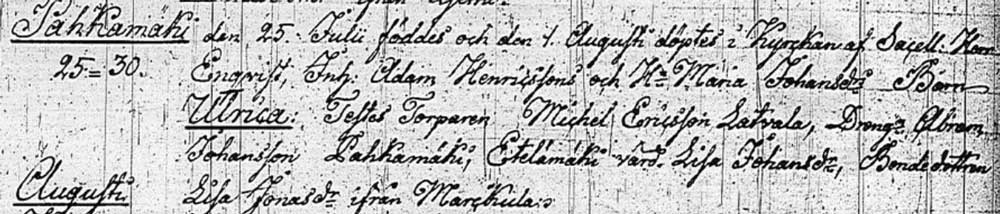 Pahkamäki den 25. Julii föddes och den 1. Augusti döptes i Kyrckan af Sacell: Herr
25=30. Engvist, Inh: Adam Henricssons och H: Maria Johansdr Barn
Ulrica: Testes Torparen Michel Ericsson Latvala, Dreng: Abram
Johansson Pahkamäki, Etelämäki värd. Lisa Johansdr, Bondedottren
Augusti Lisa Jonasdr ifrån Marckula: